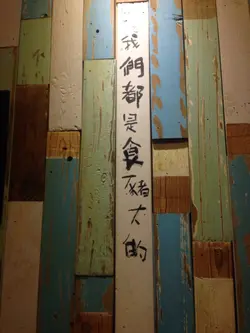 我們都是食豬大的